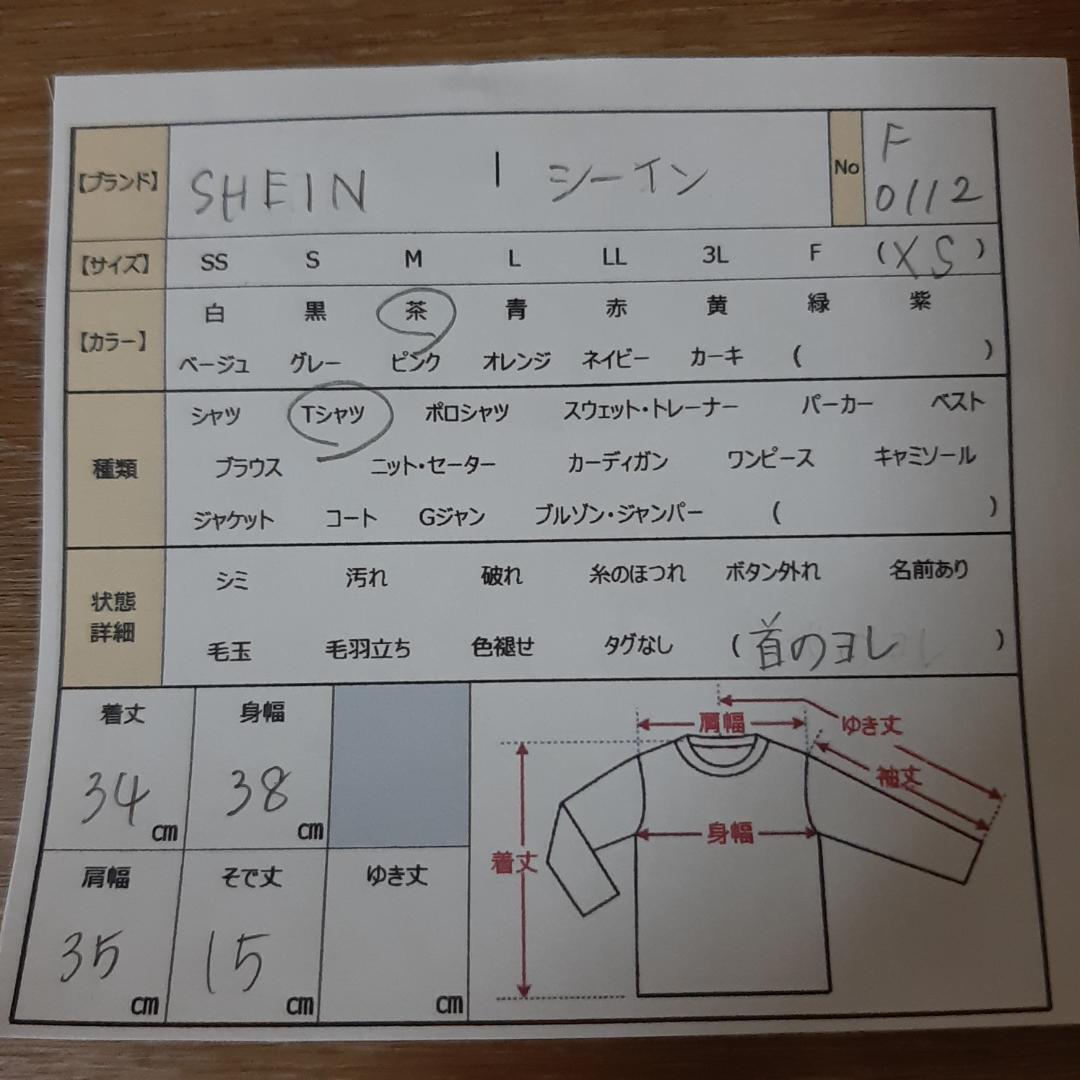 【ブランド】 SHEIN | シーイン No F 0112
【サイズ】 SS S M L LL 3L F (XS)
【カラー】 白 黒 茶 青 赤 黄 緑 紫
ベージュ グレー ピンク オレンジ ネイビー カーキ ( )
種類 シャツ Tシャツ ポロシャツ スウェット・トレーナー パーカー ベスト
ブラウス ニット・セーター カーディガン ワンピース キャミソール
ジャケット コート Gジャン ブルゾン・ジャンパー ( )
状態詳細 シミ 汚れ 破れ 糸のほつれ ボタン外れ 名前あり
毛玉 毛羽立ち 色褪せ タグなし (首のヨレ)
着丈 身幅
34cm 38cm
肩幅 そで丈 ゆき丈
35cm 15cm cm
肩幅 ゆき丈
袖丈
身幅
着丈